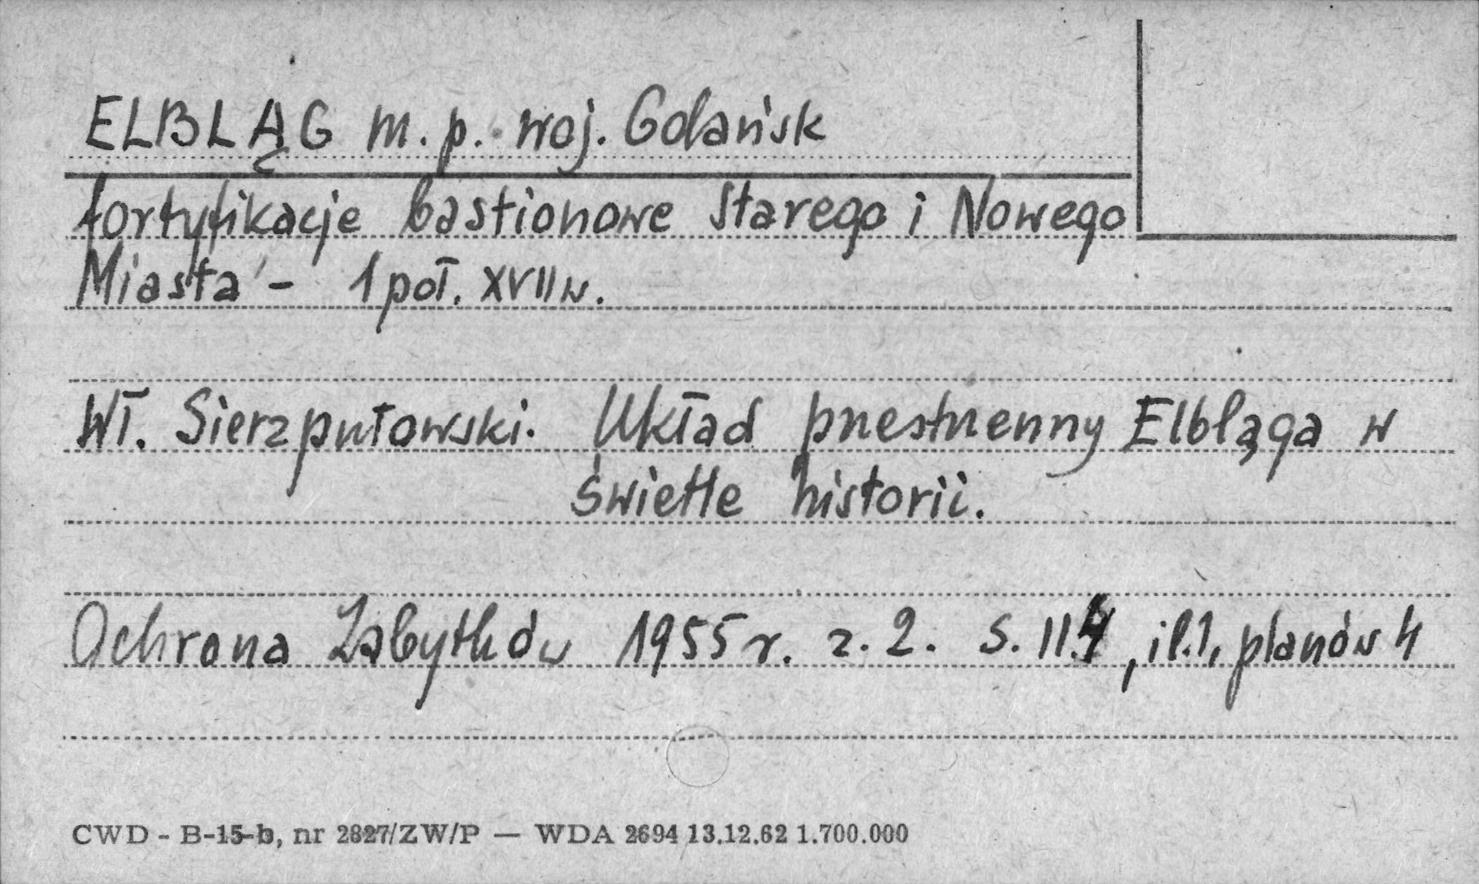 ELBLĄG m. p. woj. Gdańsk
fortyfikacje bastionowe Starego i Nowego
Miasta - 1 poł. XVII w.
Wł. Sierzputowski. Układ przestrzenny Elbląga w
świetle historii.
Ochrona Zabytków 1955 r. z. 2. s. 114, il. 1, planów 4
CWD - B-15-b, nr 2827/ZW/P — WDA 2694 13.12.62 1.700.000